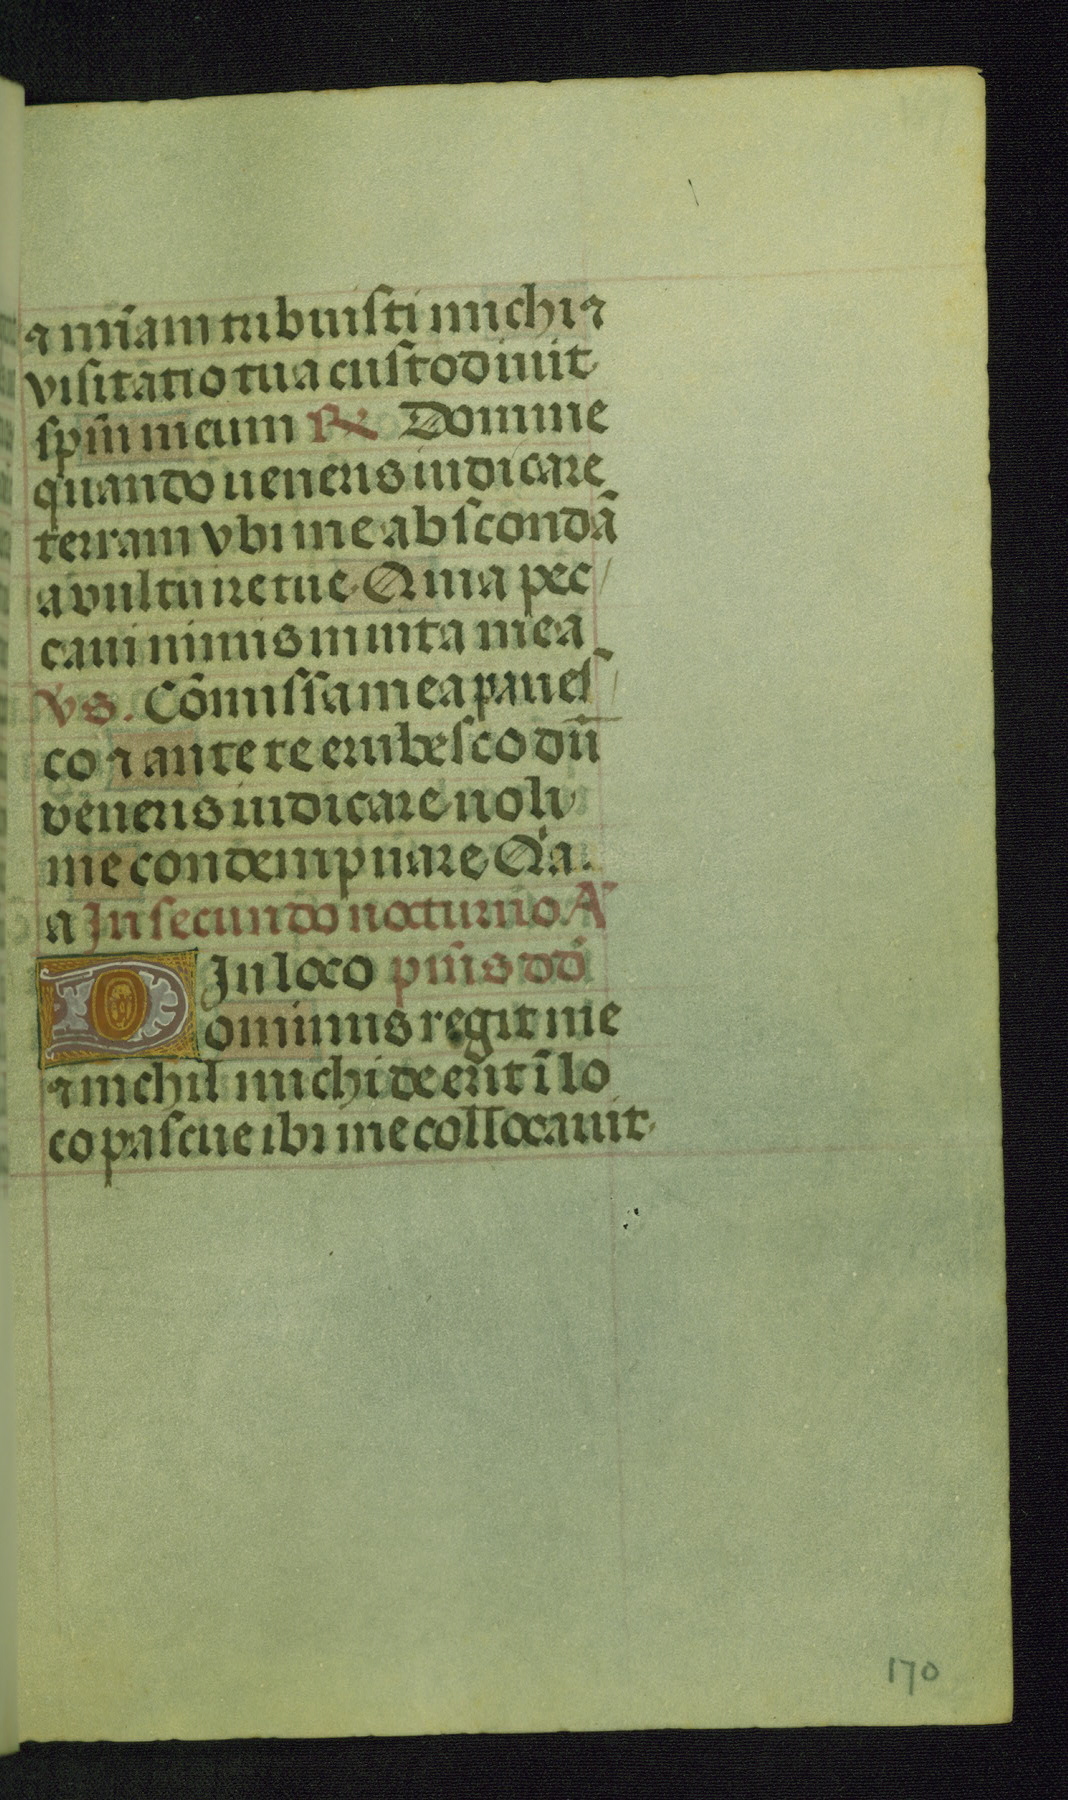 ⁊ mĩam tribuisti michi ⁊
visitatio tua custodiuit
spm̃ meum ℞ Domine
quando ueneris iudicare
terram vbi me abscondã
a vultu ire tue Quia pec/
caui nimis in uita mea
vs. Cõmissa mea paues/
co ⁊ ante te erubesco dũ
veneris iudicare noli
me condempnare Q̃a.
a In secundo nocturno A
In loco ps̃us dd̃
Dominus regit me
⁊ nichil michi deerit ĩ lo
co pascue ibi me collocauit
170